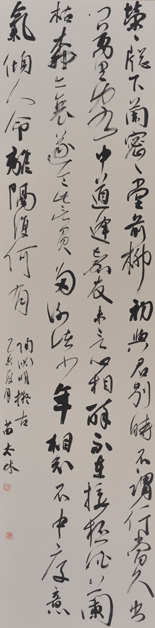 榮々窗下蘭密々堂前柳初與君別時不謂行當久出
門萬里客中道逢嘉友未言心相醉不在接杯酒蘭
枯柳亦衰遂令此言負多謝諸少年相知不中厚意
氣傾人命離隔復何有
陶淵明擬古
乙未夏月